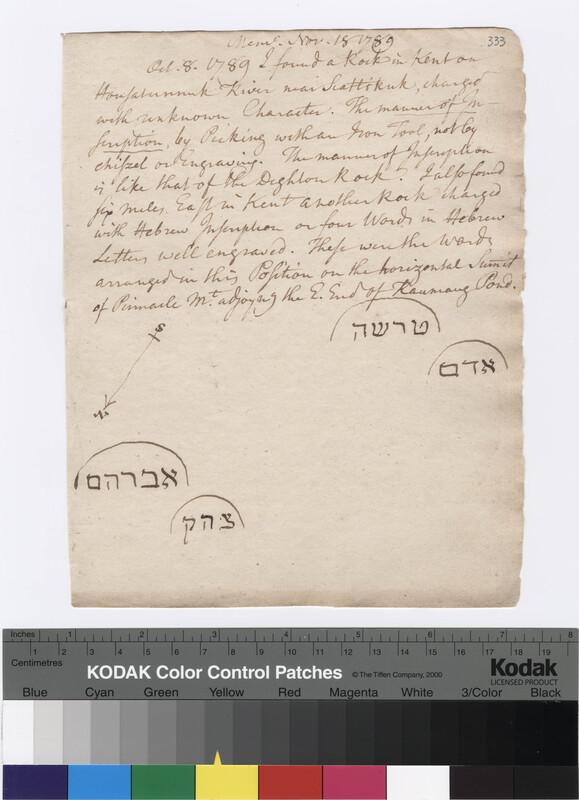 Mem°. Nov. 18 1789
333
Oct. 8. 1789 I found a Rock in Kent on
Housatunnuk River near Scattikuk, charged
with unknown Character. The manner of In-
scription, by Picking with an Iron Tool, not by
chissel or Engraving. The manner of Inscription
is like that of the Dighton Rock. I also found
six miles East in Kent another Rock charged
with Hebrew Inscription or four Words in Hebrew
Letters well engraved. These were the Words
arranged in this Position on the horizontal Sumit
of Pinnacle Mt. adjoyng the E. End of Raumaug Pond.
טרשה
אדם
S
N
אברהם
צהק
Inches 1 2 3 4 5 6 7 8
Centimetres 1 2 3 4 5 6 7 8 9 10 11 12 13 14 15 16 17 18 19
KODAK Color Control Patches © The Tiffen Company, 2000
Kodak
LICENSED PRODUCT
Blue Cyan Green Yellow Red Magenta White 3/Color Black